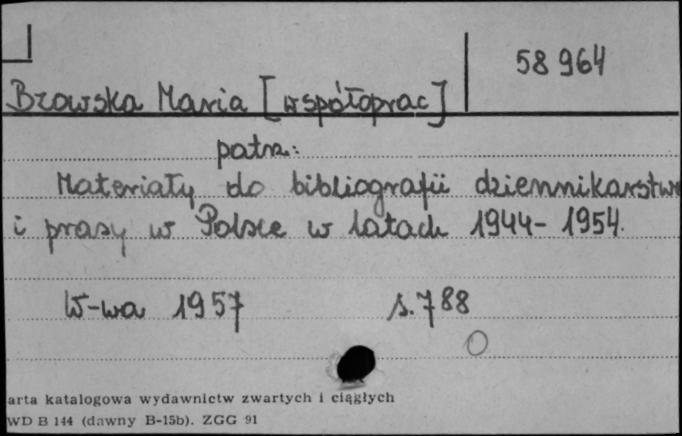 58 964
Brzowska Maria [współoprac]
patrz:
Materiały do bibliografii dziennikarstwa
i prasy w Polsce w latach 1944-1954.
W-wa 1957 s. 788
arta katalogowa wydawnictw zwartych i ciągłych
WD B 144 (dawny B-15b). ZGG 91